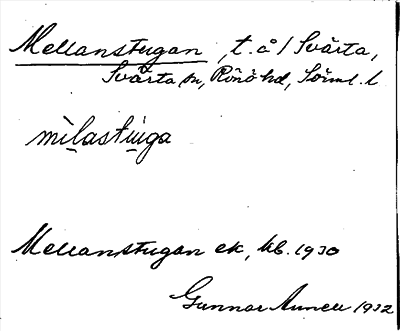 Mellanstugan, t. å / Svärta,
Svärta sn, Rönö hd, Sörml. l.
mìlastu̲ga
Mellanstugan ek, kb. 1930
Gunnar Linnell 1932